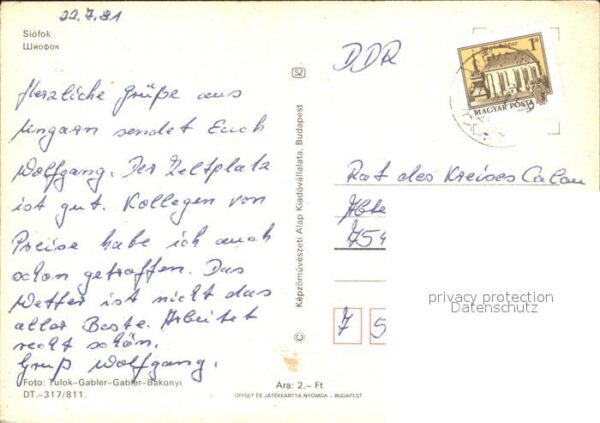 22.7.81
Siófok
Шиофок
Herzliche Grüße aus
Ungarn sendet Euch
Wolfgang. Der Zeltplatz
ist gut. Kollegen von
Preise habe ich auch
schon getroffen. Das
Wetter ist nicht das
aller Beste. Arbeitet
recht schön.
Gruß Wolfgang.
Foto: Tulok–Gabler–Gabler–Bakonyi
DT.–317/811.
Képzőművészeti Alap Kiadóvállalata, Budapest
Ára: 2.– Ft
OFFSET ÉS JÁTÉKKÁRTYA NYOMDA – BUDAPEST
DDR
1Ft
MAGYAR POSTA
Rat des Kreises Calau
Abte
754
7 5
privacy protection
Datenschutz